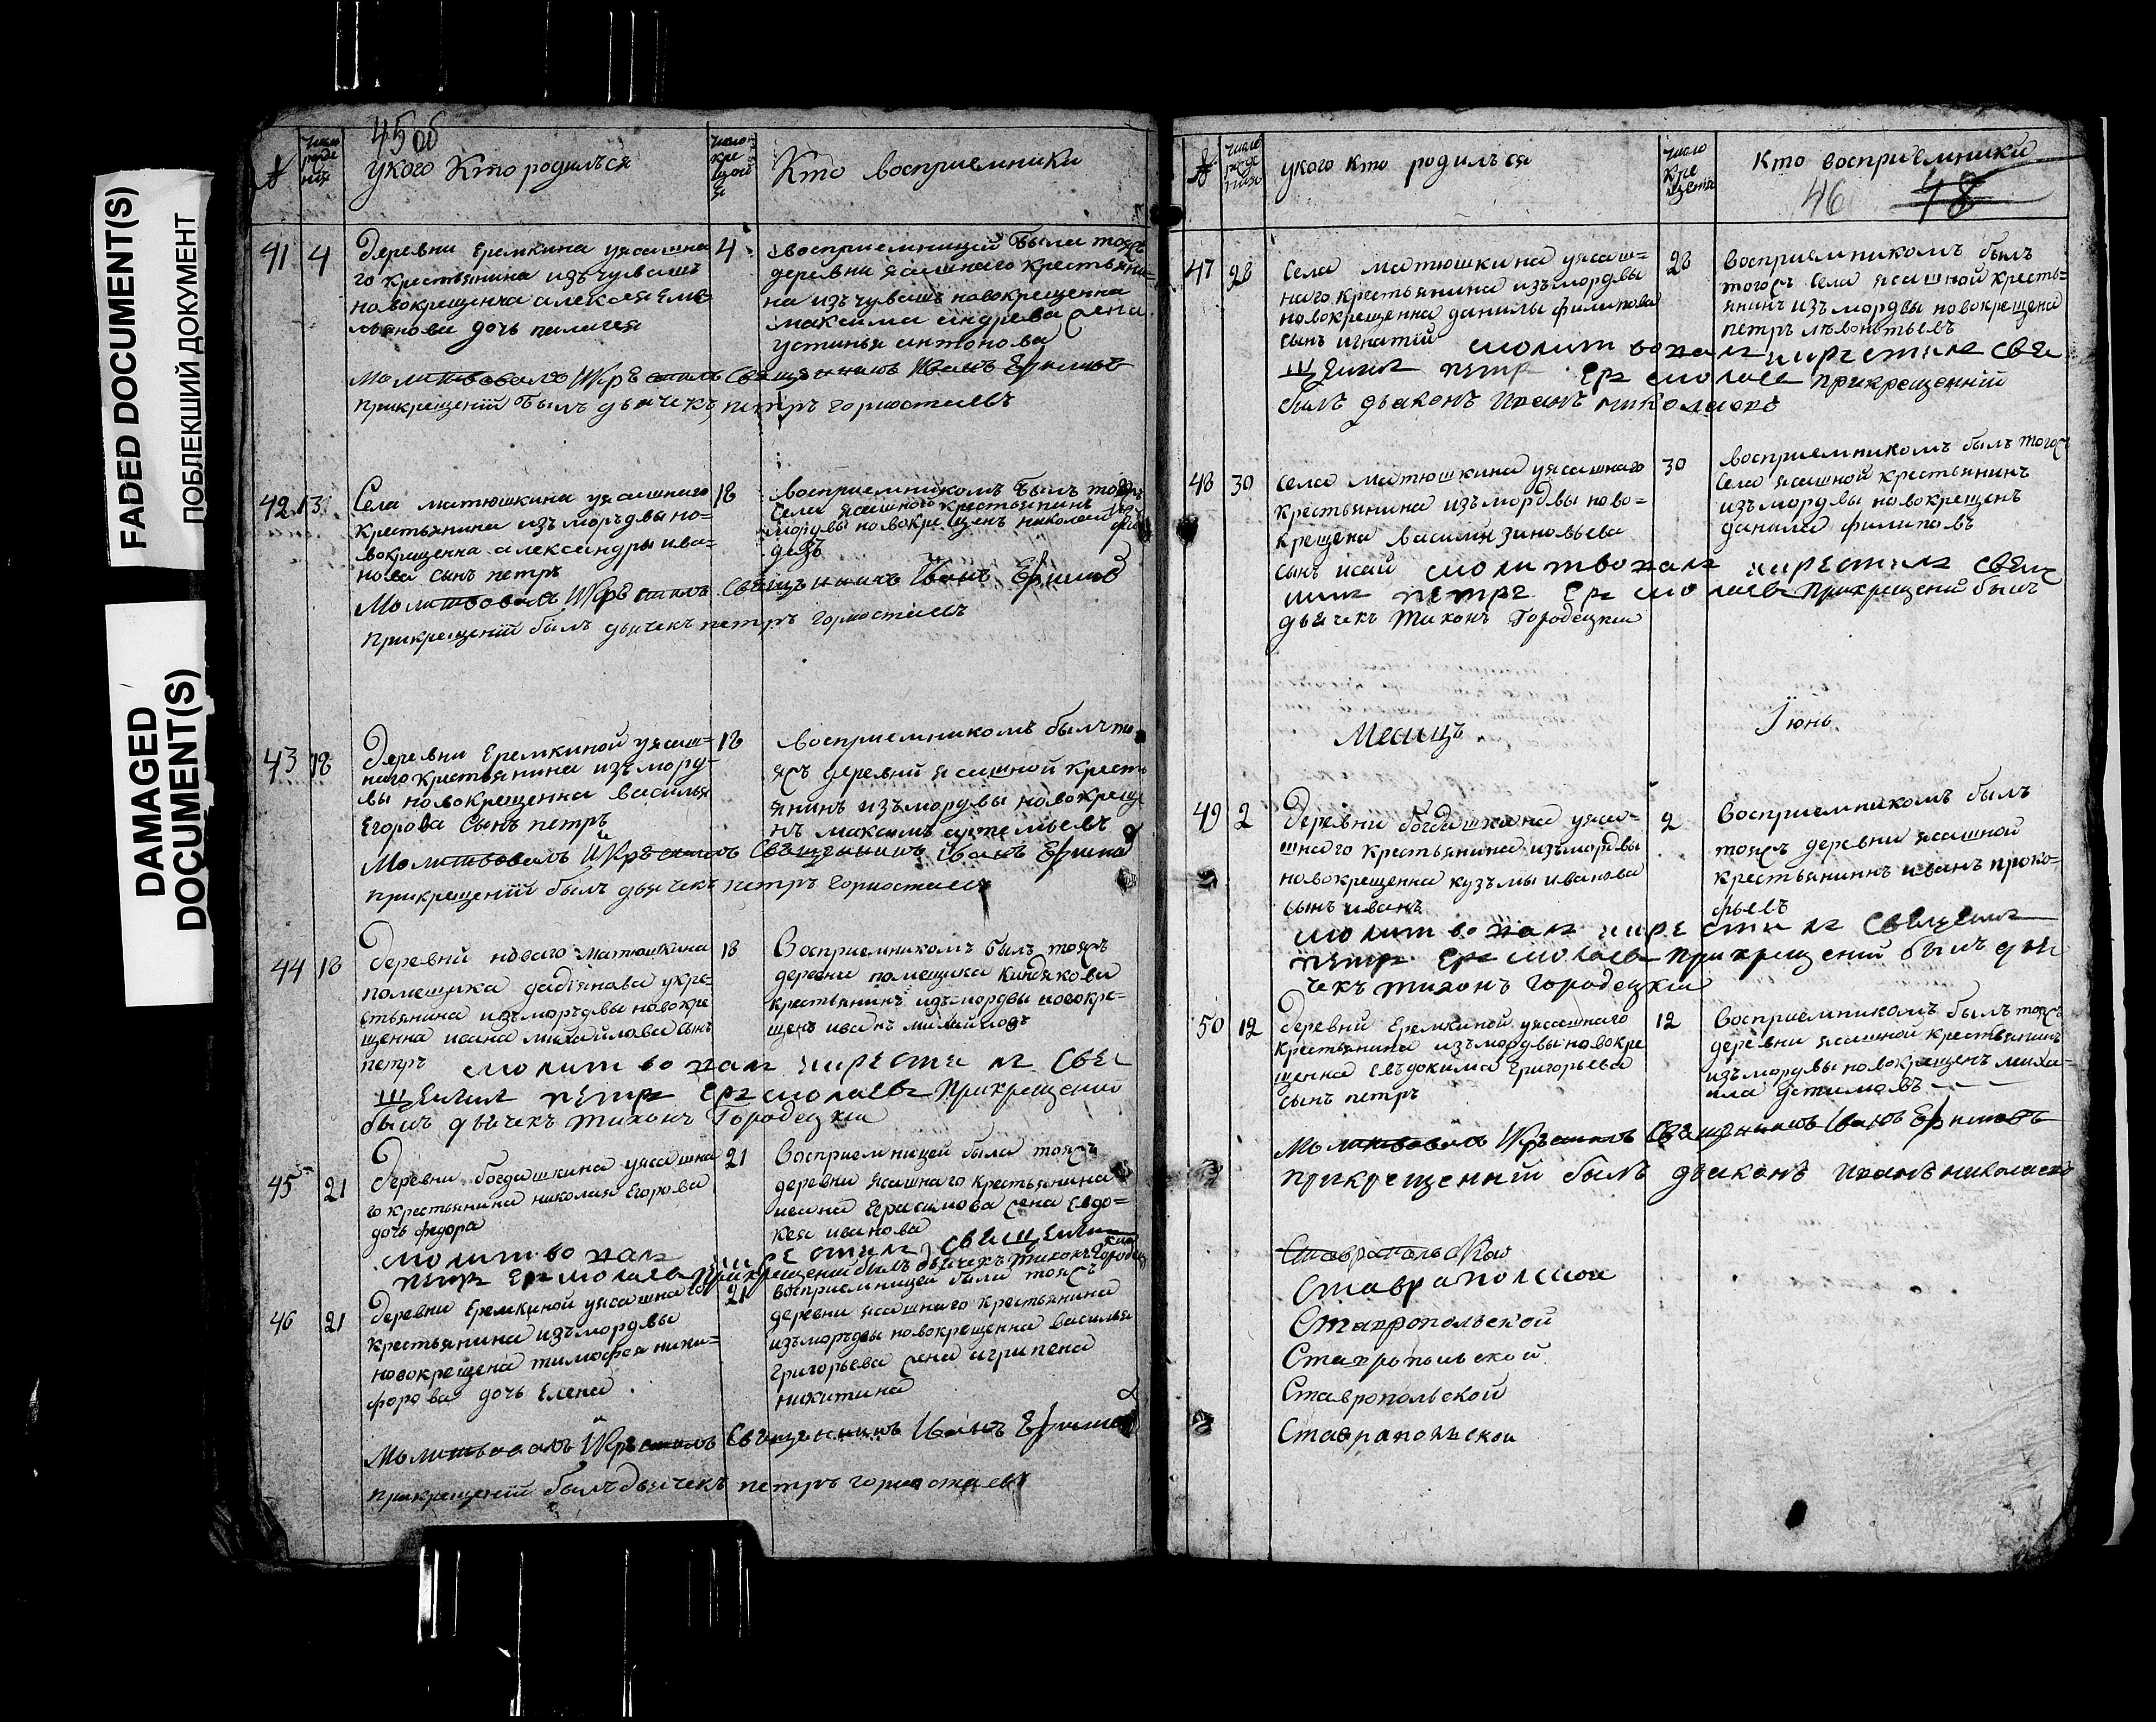 FADED DOCUMENT(S)
ПОБЛЕКШИЙ ДОКУМЕНТ
DAMAGED
DOCUMENT(S)
45 об
число рожде ния
укого Кто родилъся
число кре щения
Кто восприемники
41 4
деревни Еремкина уясашна
го крестьянина изъ чувашъ
новокрещенна алексея Еме
льянова дочь пелагея
4
восприемницей была тояжъ
деревни ясашнаго крестьяни-
на изъ чувашъ новокрещенна
максима андрева жена
устинья антонова
Молитвовалъ Икрѣстилъ Священникъ Иванъ Ефимовъ
прикрещенїи былъ дьячекъ петръ горностаевъ
42 13
Села матюшкина уясашнаго
крестьянина изъ моръдвы но-
вокрещенна александры ива-
нова сынъ петръ
18
восприемникомъ былъ
Села ясашной крестьянинъ
мордвы новокрещенъ николай
Молитвовалъ Икрѣстилъ Священникъ Иванъ Ефимовъ
прикрещенїи былъ дьячекъ петръ горностаевъ
43 18
Деревни Еремкиной уясаш-
наго крестьянина изъ морд-
вы новокрещенна василья
Егорова Сынъ петръ
18
восприемникомъ былъ то
яжъ деревни ясашной кресть
янинъ изъ мордвы новокреще
нъ максимъ артемьевъ
Молитвовалъ Икрѣстилъ Священникъ Иванъ Ефимовъ
прикрещенїи былъ дьячекъ петръ горностаевъ
44 18
Деревни новаго матюшкина
помещика дадїянова укре-
стьянина изъ моръдвы новокре
щенна ивана михайлова сынъ
петръ
18
Восприемникомъ былъ тояжъ
деревни помещика Киндякова
крестьянинъ изъ мордвы новокре-
щенъ иванъ михайловъ
молитвовалъ икрестилъ Све
щеникъ петръ Ермолаевъ прикрещении
былъ дьячекъ тихонъ Городецкїи
45 21
Деревни богдашкина уясашна
го крестьянина николая Егорова
дочь федора
21
Восприемницей была тояжъ
деревни ясашнаго крестьянина
ивана Герасимова жена Евдо-
кея иванова
молитвовалъ икрестилъ свещеникъ
петръ Ермолаевъ прикрещении былъ дьячекъ тихонъ Городецкїи
46 21
Деревни Еремкиной уясашнаго
крестьянина изъ мордвы
новокрещена тимофея ники-
форова дочь Елена
21
восприемницей была тояжъ
деревни ясашнаго крестьянина
изъ моръдвы новокрещенна василья
Григорьева жена агрипена
никитина
Молитвовалъ Икрѣстилъ Священникъ Иванъ Ефимовъ
прикрещенїи былъ дьячекъ петръ горностаевъ
число рожде ния
укого кто родилъся
число кре щения
Кто восприемники
46 48
47 28
Села матюшкина уясаш-
наго крестьянина изъ мордвы
новокрещенна данилы филипова
сынъ игнатїй
28
Восприемникомъ былъ
тогожъ Села ясашной кресть-
янинъ изъ мордвы новокрещена
петръ лѣвонтьевъ
молитвовалъ икрестилъ Све
щеникъ петръ Ермолаевъ прикрещенній
былъ дьаконъ Иванъ николаевъ
48 30
Села матюшкина уясашнаго
крестьянина изъ мордвы ново-
крещена василия зиновьева
сынъ исай
30
Восприемникомъ былъ тогожъ
Села ясашной крестьянинъ
изъ мордвы новокрещенъ
данила филиповъ
молитвовалъ икрестилъ свеще
никъ петръ Ермолаевъ прикрещенїи былъ
дьячекъ тихонъ Городецкїи
Месяцъ
Іюнь
49 2
Деревни богдашкина уяса-
шнаго крестьянина изъ мордвы
новокрещенна кузьмы иванова
сынъ иванъ
2
Восприемникомъ былъ
тояжъ деревни ясашной
крестьянинъ иванъ проко-
фьевъ
молитвовалъ икрестилъ Свещеникъ
петръ Ермолаевъ прикрещенїи былъ дья
чекъ тихонъ Городецкїи
50 12
Деревни Еремкиной уясашнаго
крестьянина изъ мордвы новокре
щенна Евъдокима Григорьева
сынъ петръ
12
Восприемникомъ былъ тояжъ
деревни ясашной крестьянинъ
изъ мордвы новокрещенъ миха-
ила Устимовъ
Молитвовалъ Икрѣстилъ Священникъ Иванъ Ефимовъ
прикрещенній былъ дьаконъ Иванъ николаевъ
Ставропольской
Ставраполской
Ставропольской
Ставропольской
Ставропольской
Ставрапольской